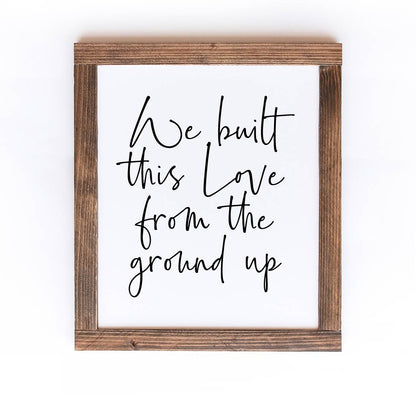 We built
this Love
from the
ground up